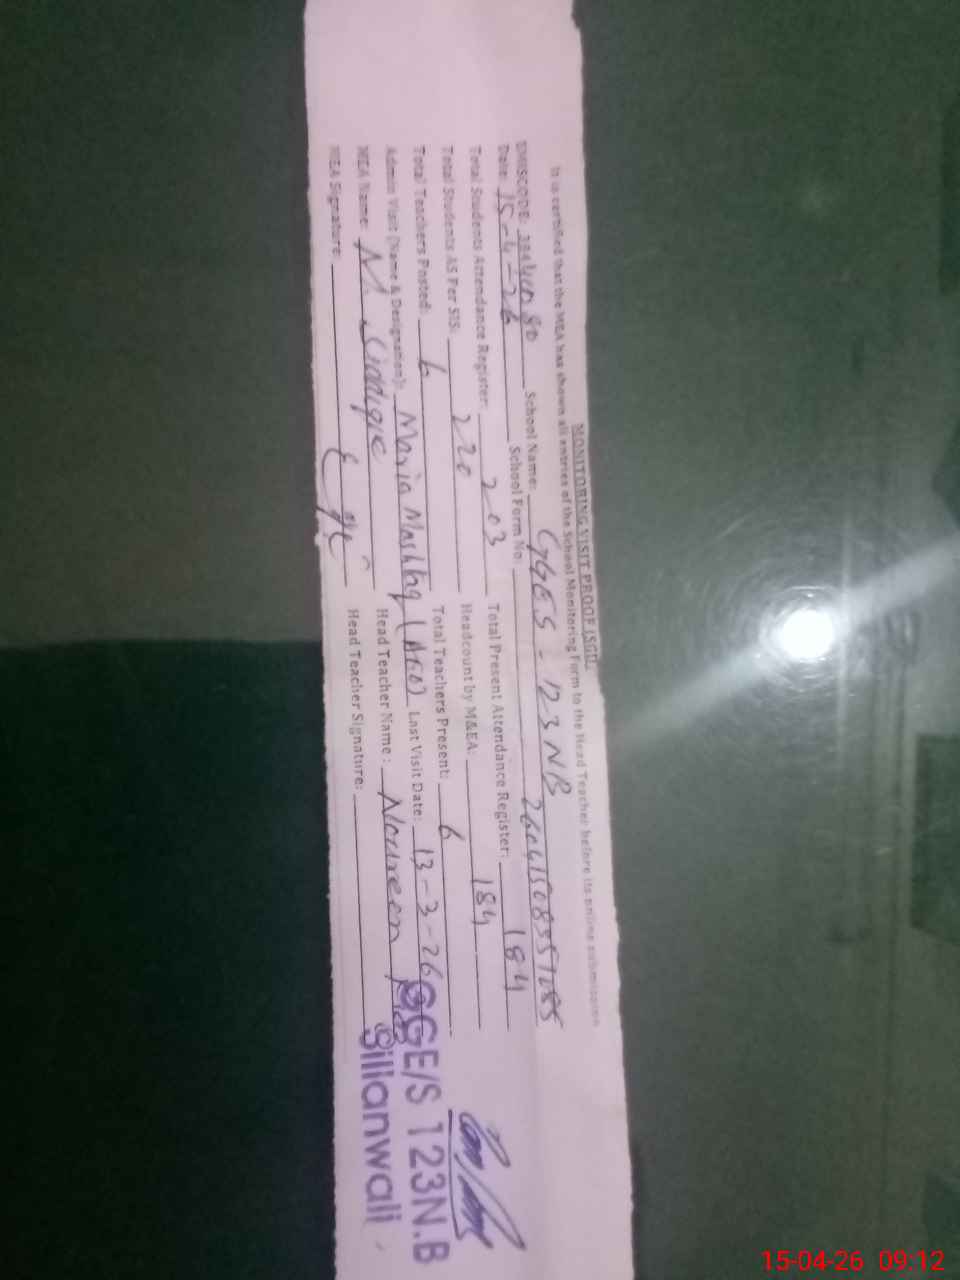 MONITORING VISIT PROOF (SGI)
It is certified that the MEA has shown all entries of the School Monitoring Form to the Head Teacher before its online submission
EMISCODE: School Name: GGES - 123 NB
Date: 15-4-26 School Form No:
Total Students Attendance Register: 203 Total Present Attendance Register: 184
Total Students AS Per SIS: 220 Headcount by M&EA: 184
Total Teachers Posted: 6 Total Teachers Present: 6
Admin Visit (Name & Designation): Maria Mashtaq (AEO) Last Visit Date: 13-3-26
MEA Name: M. Siddique Head Teacher Name: Noureen
MEA Signature: Head Teacher Signature:
GGE/S 123N.B
Sillanwali
15-04-26 09:12